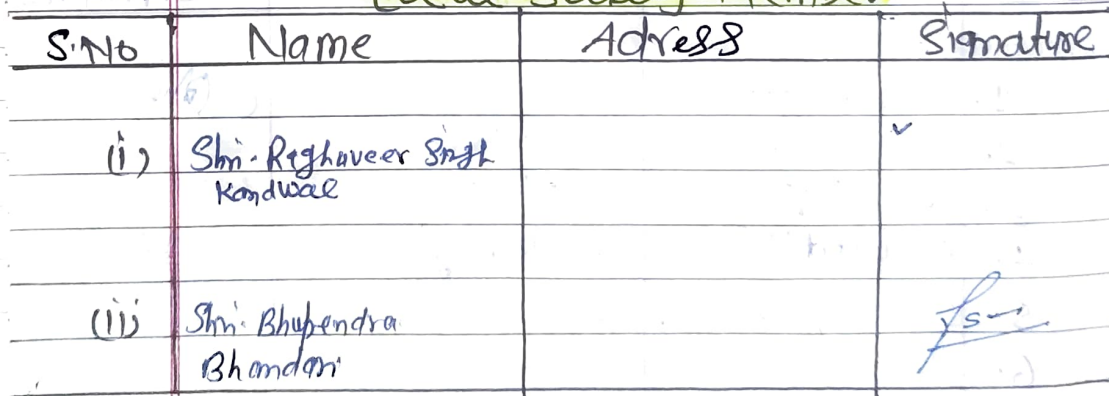 S.No Name Adress Signature
(i) Shri. Raghuveer Singh
Kandwal
(ii) Shri. Bhupendra
Bhandari